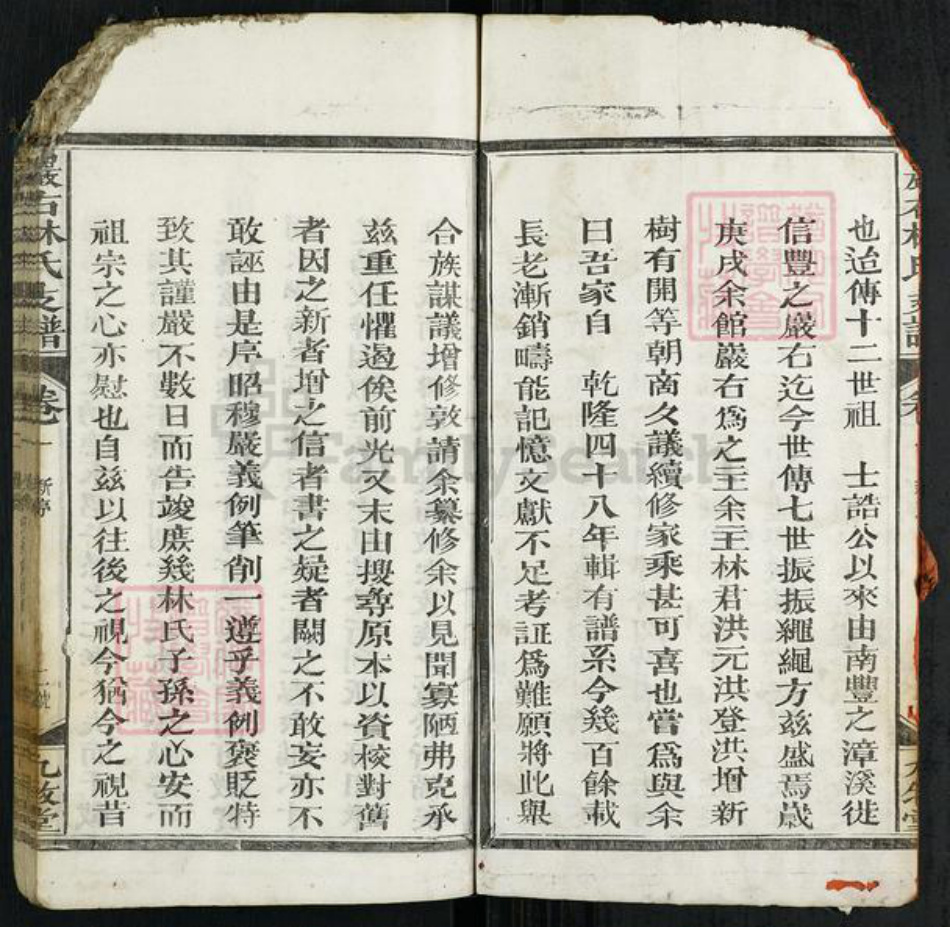 也迨傳十二世祖　士誥公以來由南豐之漳溪徙
信豐之巖右迄今世傳七世振振繩繩方玆盛焉歲
庚戌余館巖右爲之主余主林君洪元洪登洪增新
樹有開等朝啇夂議續修家乘甚可喜也嘗爲與余
曰吾家自　乾隆四十八年輯有譜系今幾百餘載
長老漸銷疇能記憶文獻不足考証爲難願將此舉
合族謀議增修敦請余纂修余以見聞寡陋弗克承
玆重任懼遏俟前光又末由搜尋原本以資核對舊
者因之新者增之信者書之疑者闕之不敢妄亦不
敢誣由是序昭穆嚴義例筆削一遵乎義例褒貶特
致其謹嚴不數日而告竣庶幾林氏子孫之心安而
祖宗之心亦慰也自玆以往後之視今猶今之視昔
巖右林氏支譜
卷一
FamilySearch